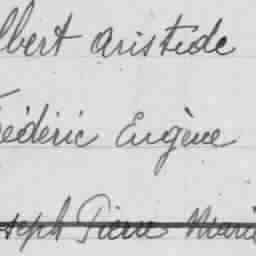 lbert Aristide
rédéric Eugène
oseph Pierre Marie